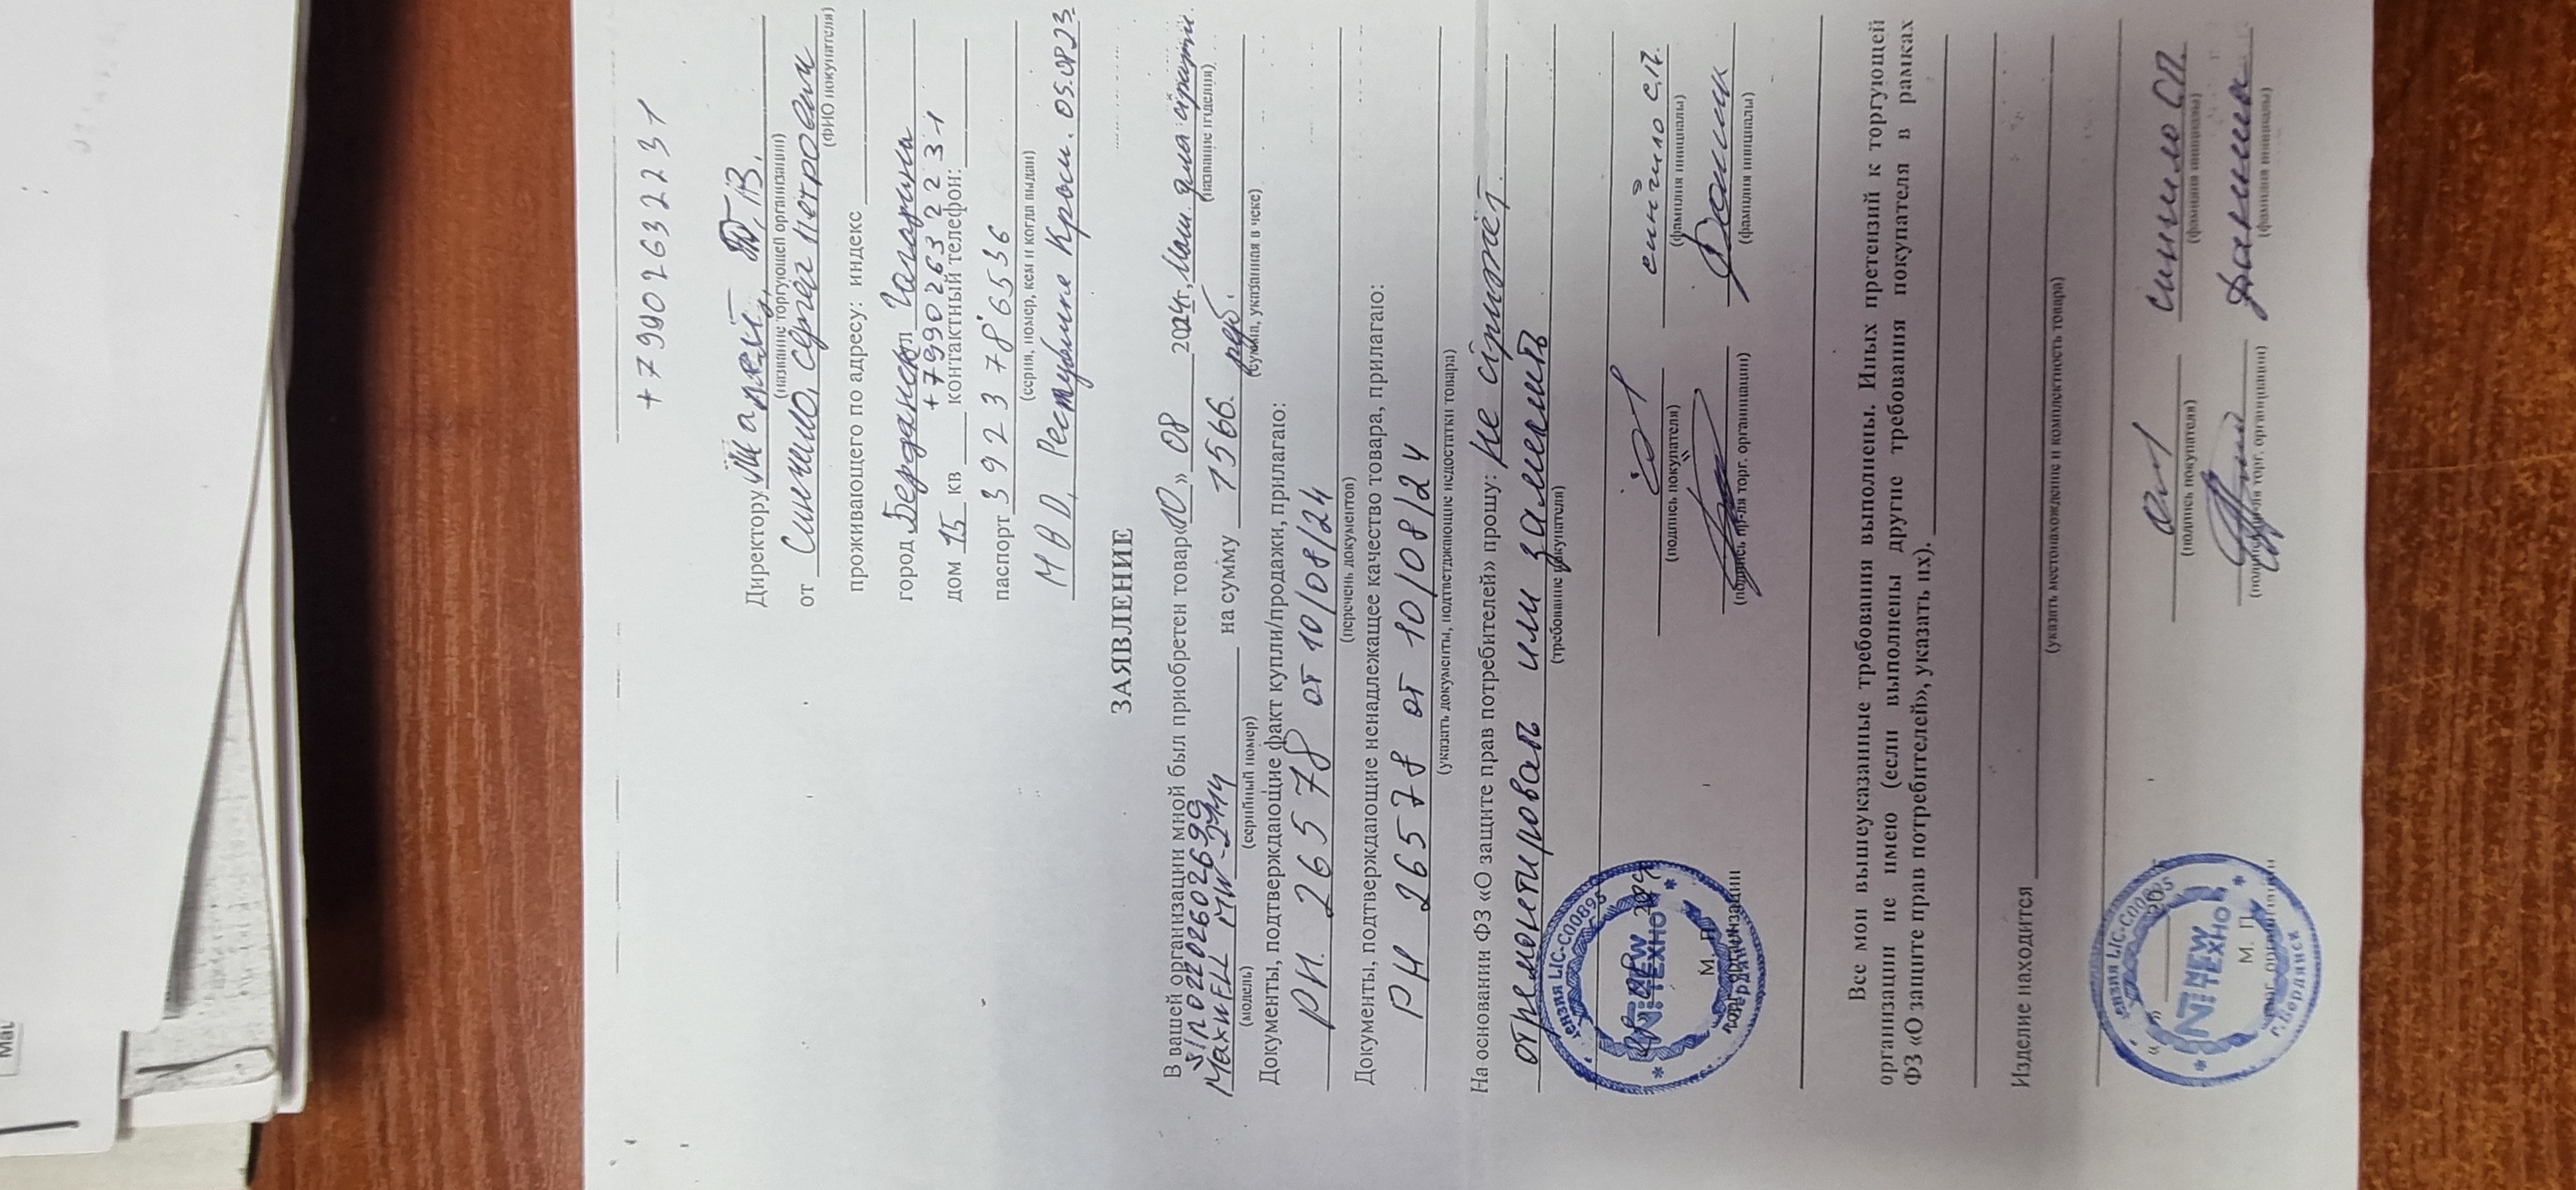 +79902632231
Директору
(название торгующей организации)
от Синило, Сергея Петровича
(ФИО покупателя)
проживающего по адресу: индекс
город Бердянск Гагарина
+79902632231
дом 15 кв контактный телефон:
паспорт 3923786536
(серия, номер, кем и когда выдан)
МВД, Республике Крым. 05.08.23
ЗАЯВЛЕНИЕ
В вашей организации мной был приобретен товар «10» 08 2024г., Маш. для стрижки.
(название изделия)
MaxwELL MW на сумму 1566 руб.
(модель) (серийный номер) (сумма, указанная в чеке)
Документы, подтверждающие факт купли/продажи, прилагаю:
РН. 26578 от 10/08/24
(перечень документов)
Документы, подтверждающие ненадлежащее качество товара, прилагаю:
РН 26578 от 10/08/24
(указать документы, подтверждающие недостатки товара)
На основании ФЗ «О защите прав потребителей» прошу: Не стрижёт.
отремонтировать или заменить
(требование покупателя)
синило С.П.
(подпись покупателя) (фамилия инициалы)
М. П.
торг. организации (подпись пр-ля торг. организации) (фамилия инициалы)
NEW ТЕХНО
Все мои вышеуказанные требования выполнены. Иных претензий к торгующей
организации не имею (если выполнены другие требования покупателя в рамках
ФЗ «О защите прав потребителей», указать их).
Изделие находится
(указать местонахождение и комплектность товара)
Синило СП
(подпись покупателя) (фамилия инициалы)
М. П.
торг. организации (подпись пр-ля торг. организации) (фамилия инициалы)
NEW ТЕХНО
г. Бердянск